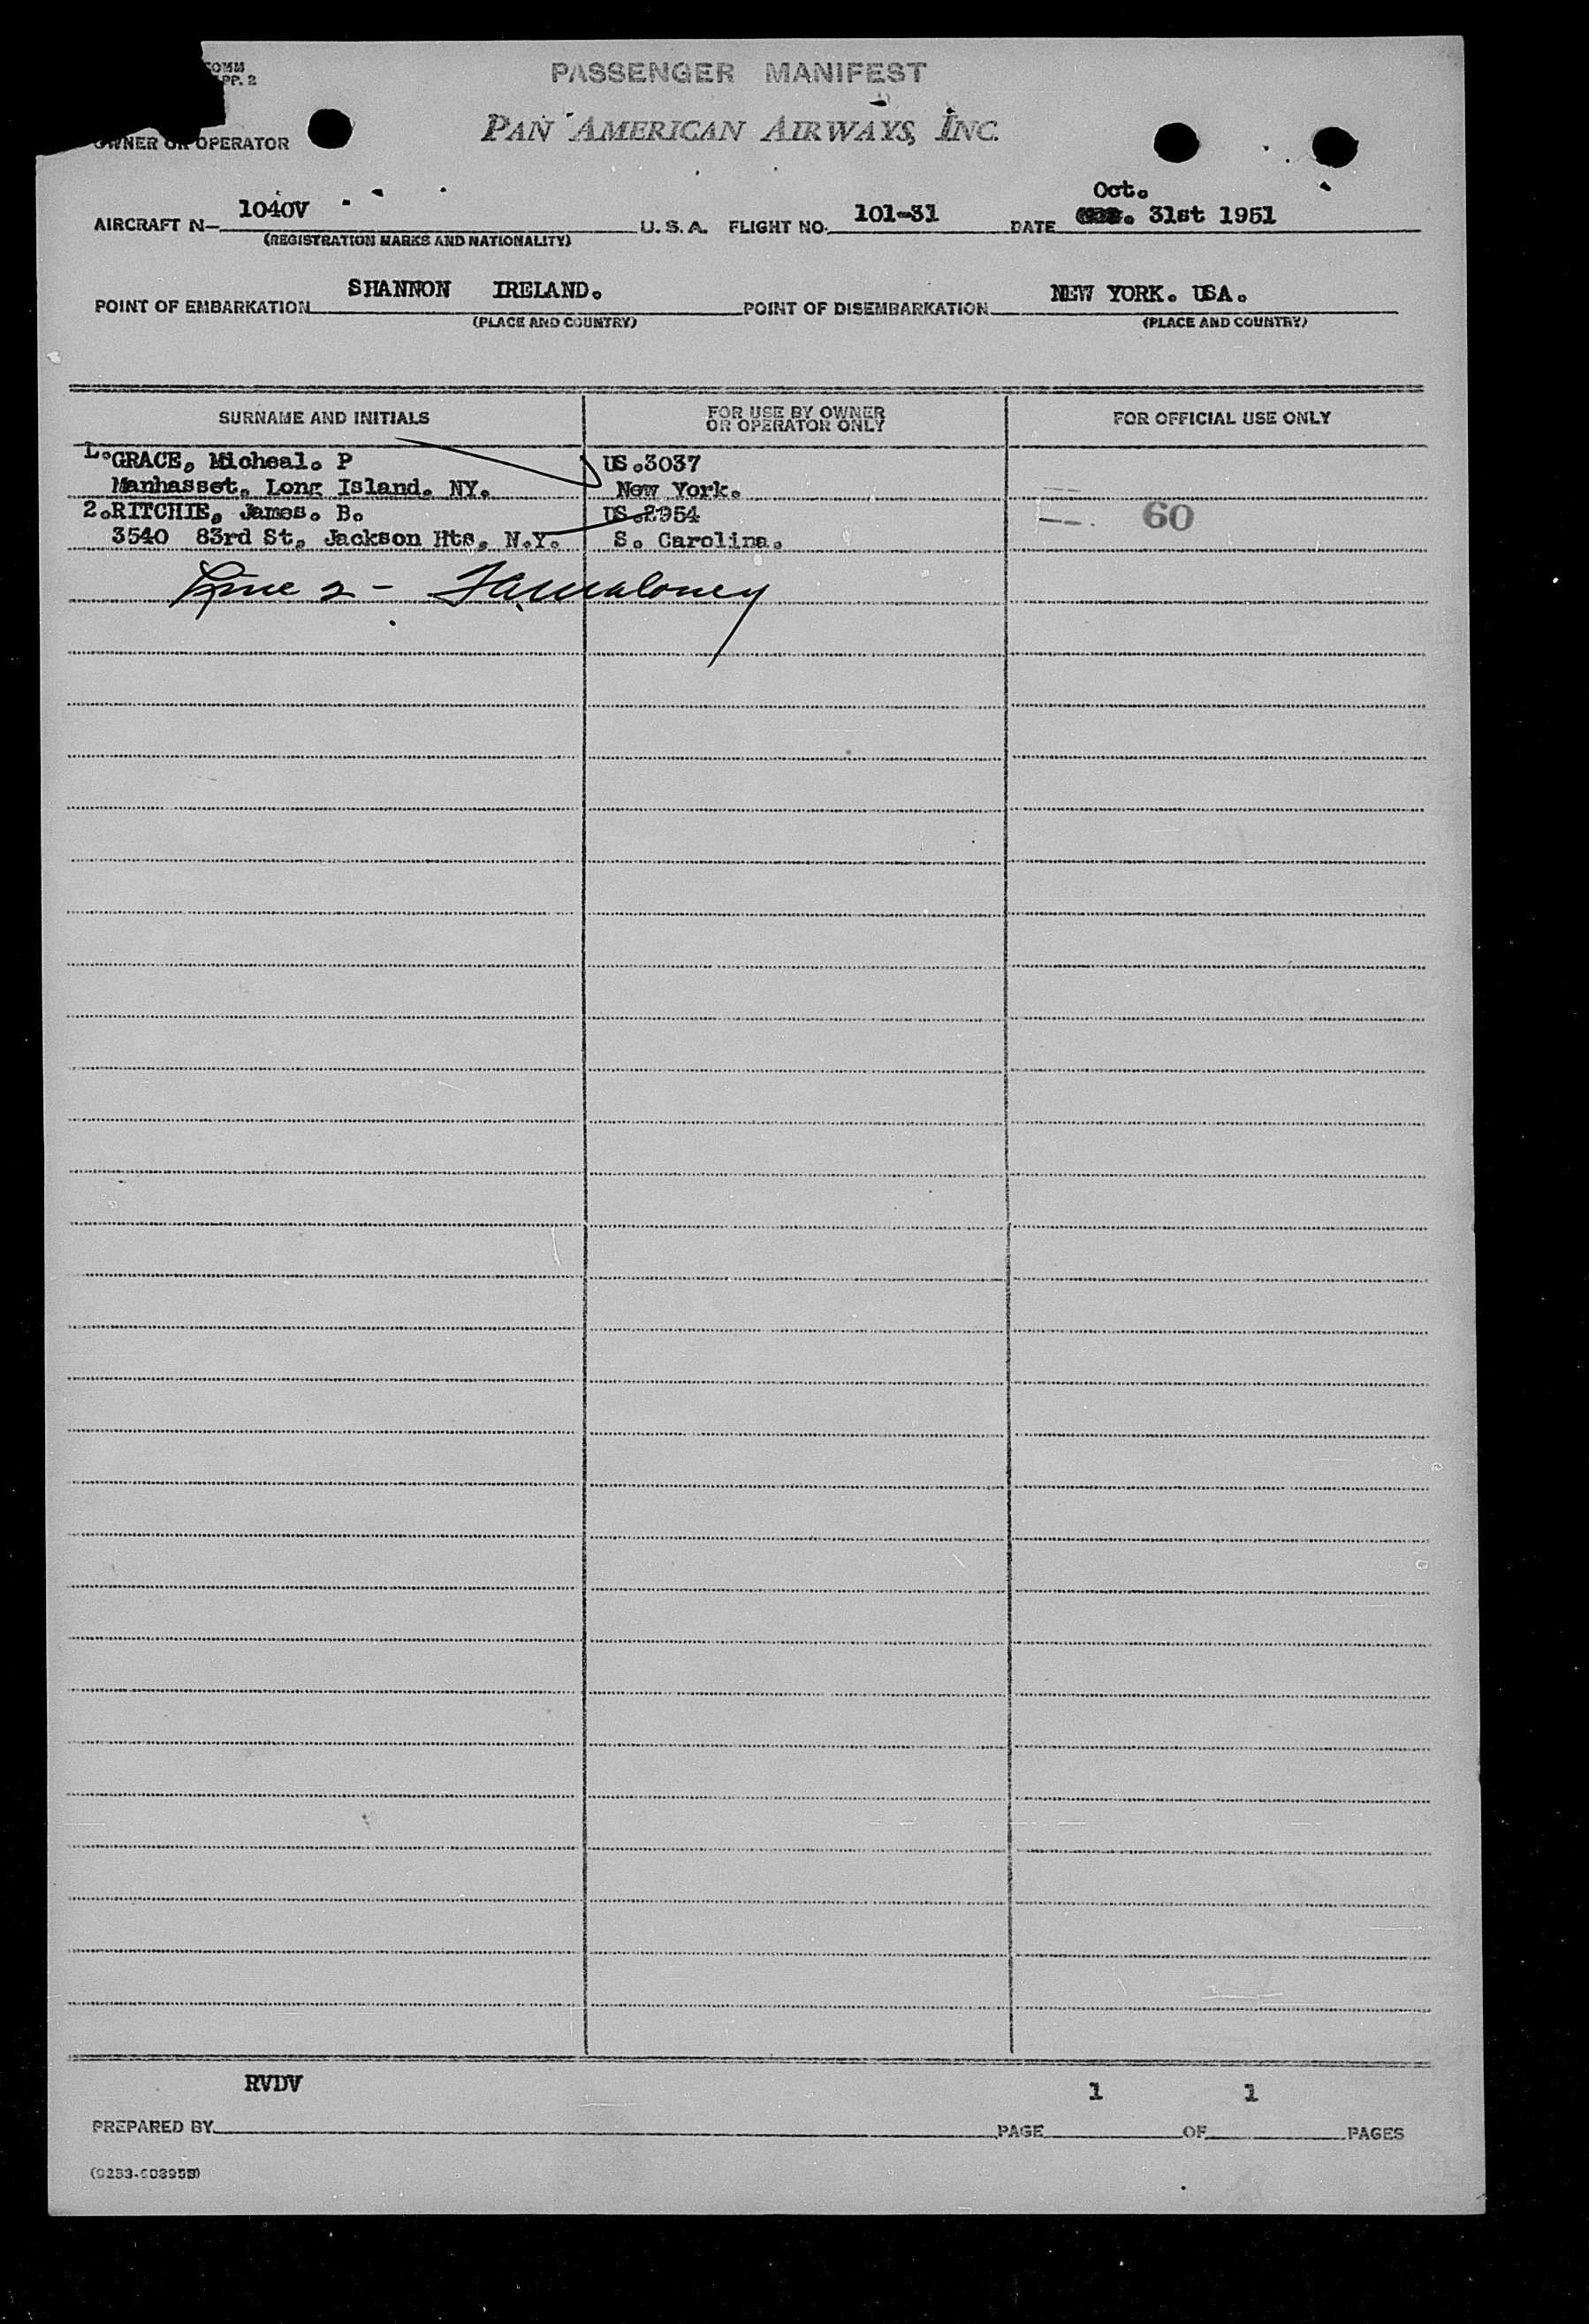 COMM
APP. 2
PASSENGER MANIFEST
PAN AMERICAN AIRWAYS, INC.
OWNER OR OPERATOR
Oct.
AIRCRAFT N- 1040V U. S. A. FLIGHT NO. 101-31 DATE 31st 1951
(REGISTRATION MARKS AND NATIONALITY)
POINT OF EMBARKATION SHANNON IRELAND. POINT OF DISEMBARKATION NEW YORK. USA.
(PLACE AND COUNTRY) (PLACE AND COUNTRY)
SURNAME AND INITIALS FOR USE BY OWNER OR OPERATOR ONLY FOR OFFICIAL USE ONLY
GRACE, Micheal. P US.3037
Manhasset, Long Island. NY. New York.
2.RITCHIE, James. B. US.2954 60
3540 83rd St, Jackson Hts, N.Y. S. Carolina.
Line 2 -
RVDV
PREPARED BY PAGE 1 OF 1 PAGES